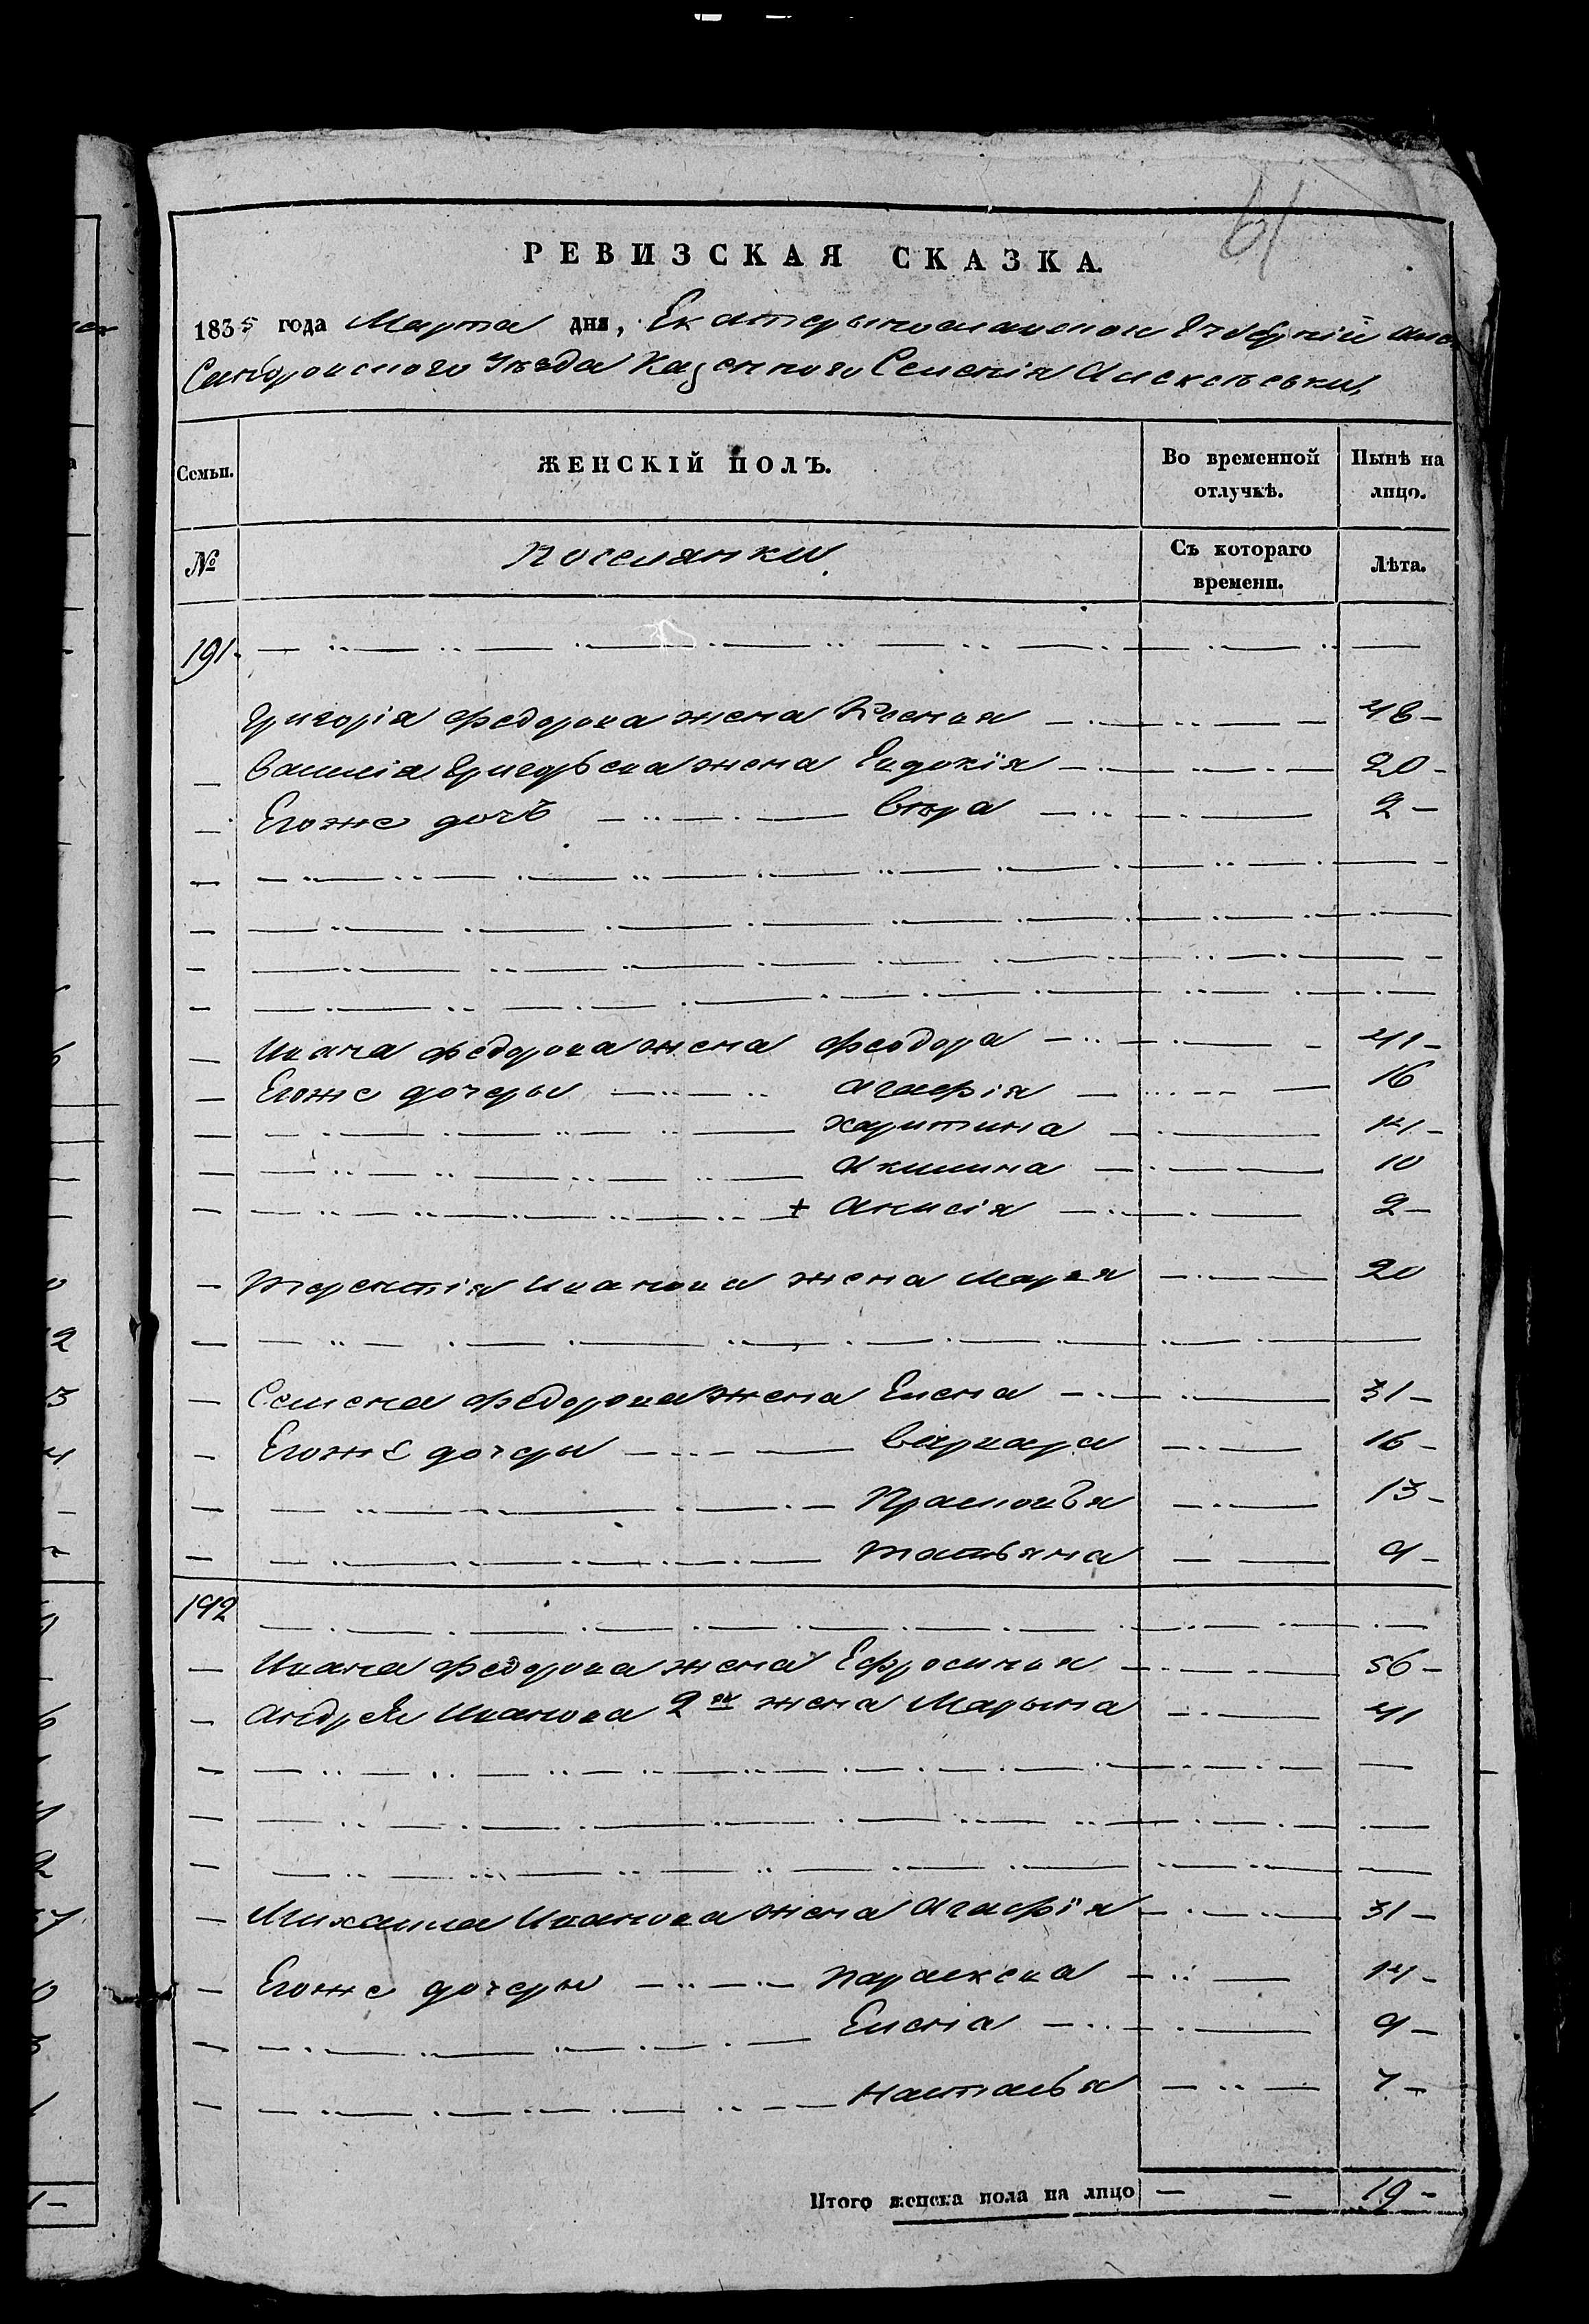 61
РЕВИЗСКАЯ СКАЗКА.
1835 года Марта дня, Екатеринославской Губерніи Алек
сандровского Уезда Казенного Селенія Алексѣевки,
Семьи. ЖЕНСКІЙ ПОЛЪ. Во временной отлучкѣ. Нынѣ на лицо.
№ Поселянки. Съ котораго времени. Лѣта.
191.
Григорія Федорова жена Ксенія 48
Василія Григорьева жена Евдокія 20
Егоже дочь Вѣра 2
Ивана Федорова жена Феодора 41
Егоже дочери Агафія 16
Харитина 14
Акилина 10
+ Анисія 2
Терентія Иванова жена Марья 20
Семена Федорова жена Елена 31
Егоже дочери Варвара 16
Прасковья 13
Татьяна 9
192
Ивана Федорова жена Ефросинья 56
Андрея Иванова 2я жена Марьина 41
Михаила Иванова жена Агафія 31
Егоже дочери Параскева 14
Елена 9
Наталья 7
Итого женска пола на лицо 19